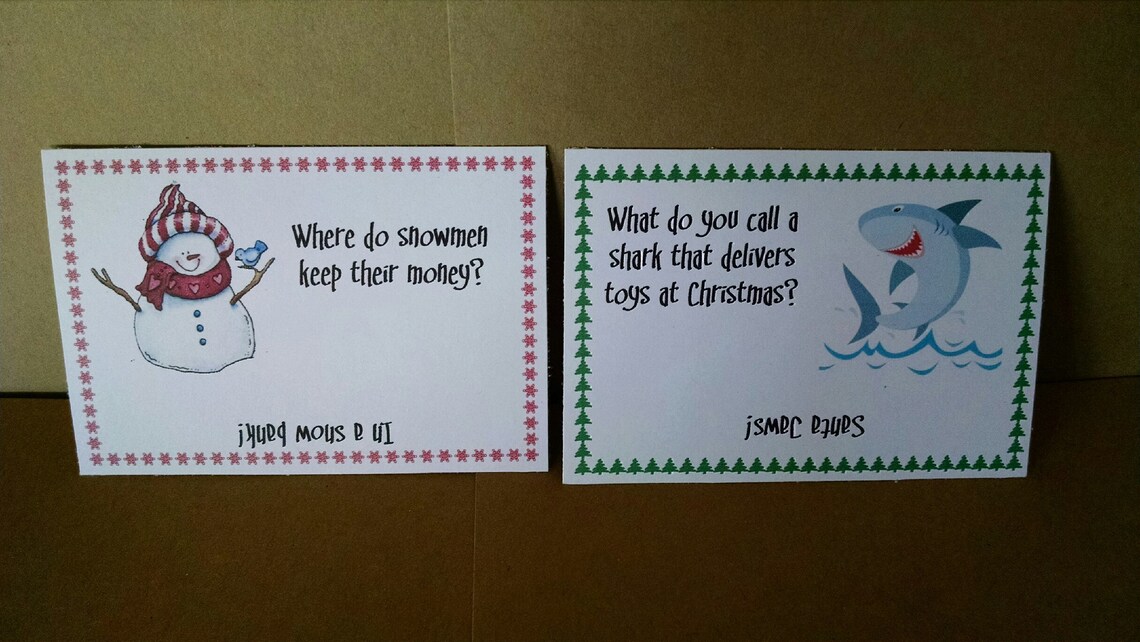 Where do snowmen
keep their money?
In a snow bank!
What do you call a
shark that delivers
toys at Christmas?
Santa Jaws!